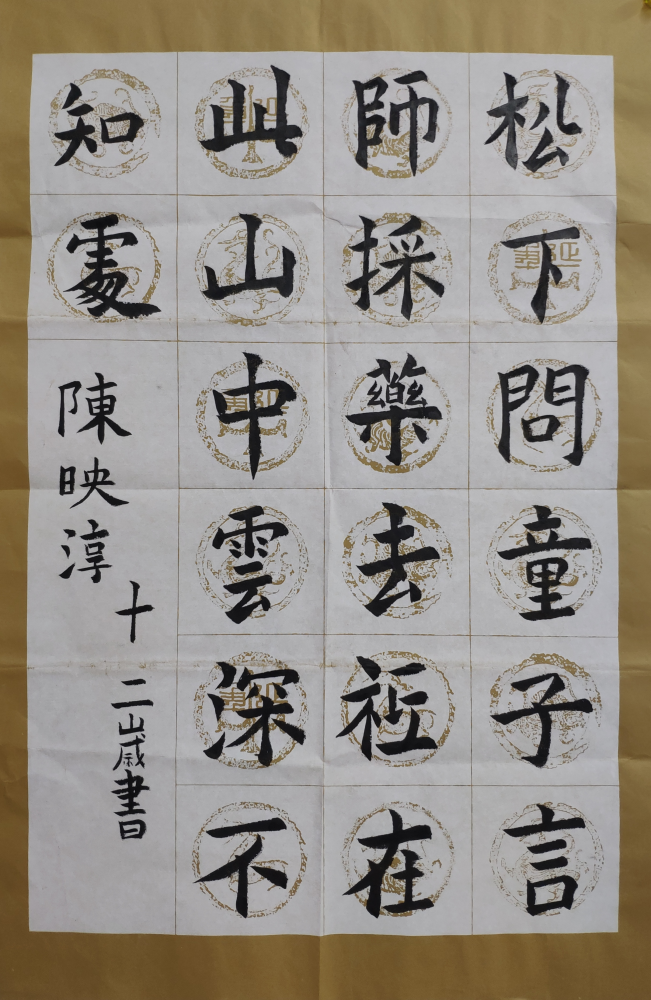 松下問童子言
師採藥去祗在
此山中雲深不
知處
陳映淳
十二歲書曰